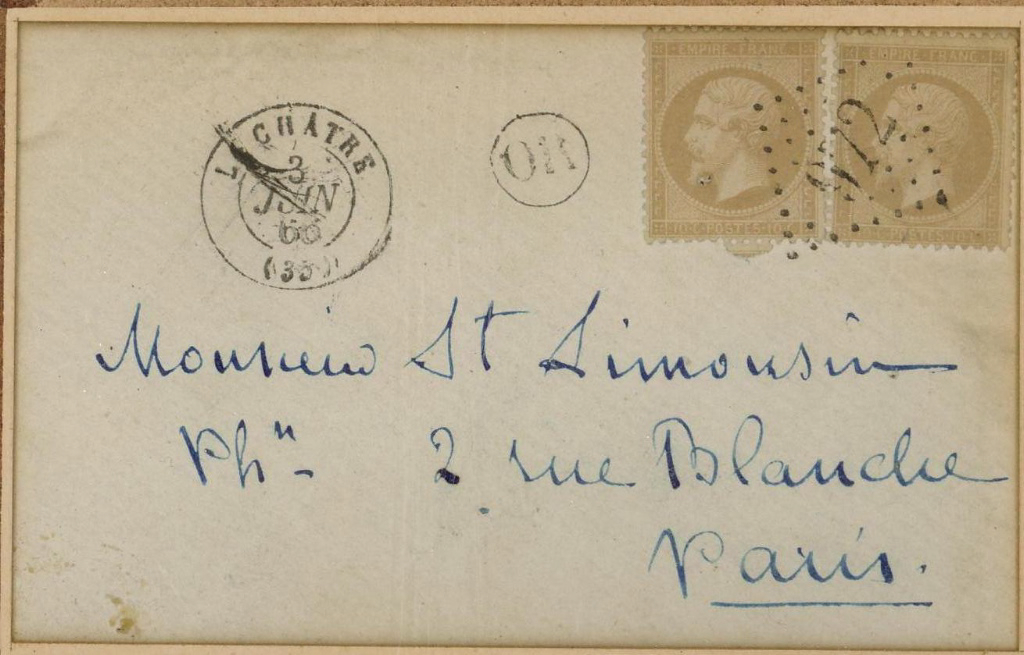 EMPIRE FRANC
EMPIRE FRANC
LA CHÂTRE
3
JUIN
66
(35)
OR
972
10 C POSTES 10 C
POSTES
Monsieur St Limousin
Phn 2 rue Blanche
Paris.